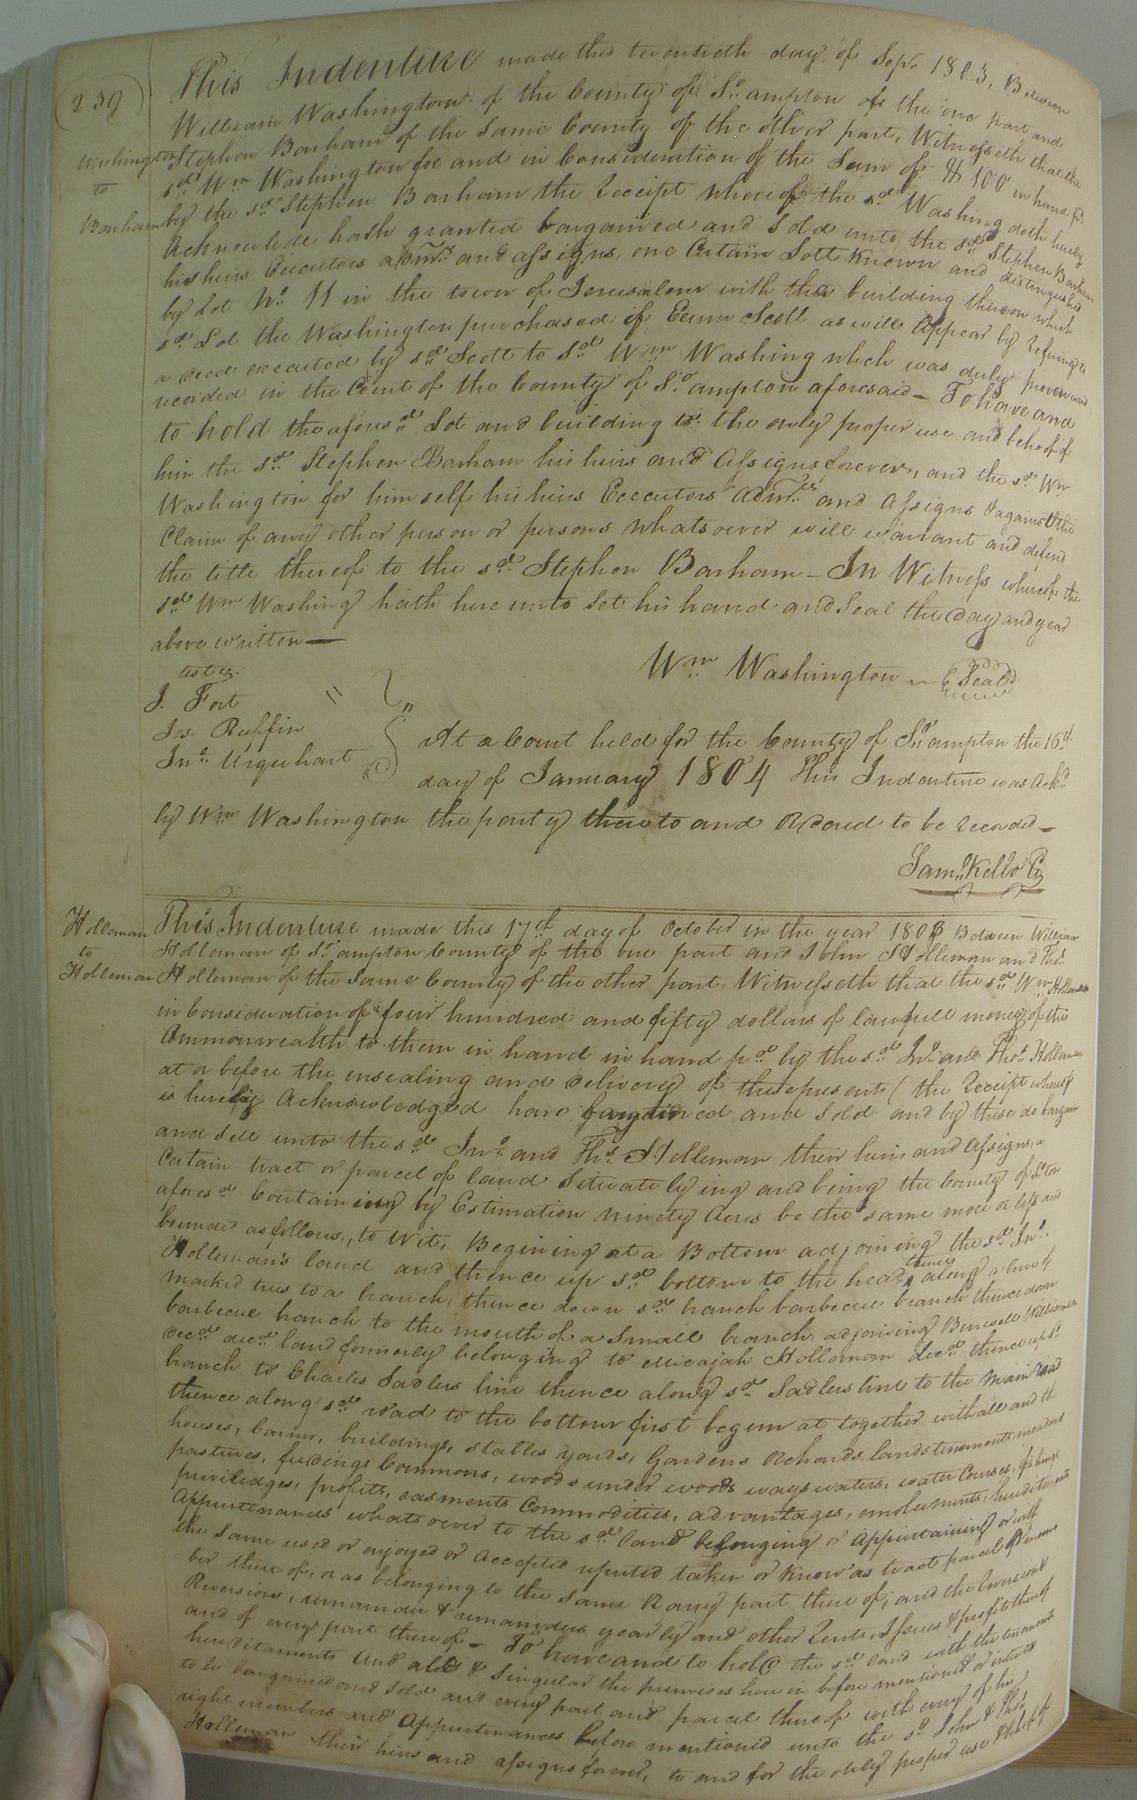 239
This Indenture made this twentieth day of Sepr. 1803, Between
William Washington of the County of So.ampton of the one part and
Washington Stephen Barham of the Same County of the other part, Witnesseth that the
to sd. Wm Washington for and in Consideration of the Sum of $100 in hand pd.
Barham by the sd. Stephen Barham the Receipt whereof the sd Washing doth hereby
Acknowlede hath granted bargained and Sold unto the sd Stephen Barham
his heirs Executors admrs and assigns, one Certain Lott Known and distinguished
by Lot No. 11 in the town of Jerusalem with the building thereon which
sd Lot the Washington purchased of Exum Scott as will Appear by refering to
a deed executed by sd Scott to sd Wm Washing which was duly proven and
recorded in the Court of the County of So.ampton aforesaid - To have and
to hold the aforesd. Lot and building to the only proper use and behoof of
him the sd. Stephen Barham his heirs and Assigns forever, and the sd Wm
Washington for himself his heirs Executors admrs and Assigns against the
Claim of any other person or persons whatsoever will warrant and defend
the title thereof to the sd. Stephen Barham - In Witness whereof the
sd Wm Washing hath here unto Set his hand and Seal the day and year
above written -
teste.
Wm Washington Seal
J. Fort
Js. Ruffin
Jno. Urquhart
At a Court held for the County of So.ampton the 16th
day of January 1804 This Indenture was ackd
by Wm Washington the party thereto and Ordered to be recorded -
Saml Kello Cy
Holleman This Indenture made this 17th day of October in the year 1803 Between William
to Holleman of So.ampton County of the one part and John Holleman and Thos.
Holleman Holleman of the Same County of the other part, Witnesseth that the sd Wm Holleman
in Consideration of four hundred and fifty dollars of lawfull money of this
Commonwealth to them in hand in hand pd by the sd Jno. and Thos. Holleman
at or before the ensealing and delivery of these presents (the Receipt whereof
is hereby Acknowledged have bargained and Sold and by these do bargain
and Sell unto the sd Jno and Thos Holleman their heirs and assigns, a
Certain tract or parcel of land Situate lying and being the County of So.ton
aforesd Containing by Estimation ninety Acres be the same more or less and
bounded as follows, to Wit, Begining at a Bottom adjoining the sd Jno.
Holleman's land and thence up sd bottom to the head thence along a line of
marked trees to a branch, thence down sd branch barbecue branch thence down
barbecue branch to the mouth of a Small branch adjoining Burwell Williamson
decd decd land formerly belonging to Micajah Holleman decd thence up sd
branch to Charles Sadlers line thence along sd Sadlers line to the Main road
thence along sd road to the bottom first begun at together with all and the
houses, barns, buildings, stables yards, Gardens Orchards, lands tenements, meadows
pastures, feedings Commons, woods under woods ways waters, water Courses, fishings
priviledges, profits, easments Commodities, advantages, emoluments, hereditaments
Appurtenances whatsoever to the sd land belonging or Appurtaining or with
the Same used or enjoyed or Accepted reputed taken or Know as tract parcel or mem
ber there of, or as belonging to the Same R any part there of; and the Reversion &
Reversions, remainder & remainders yearly and other Rents, Issues & profits thereof
and of every part there of - To have and to hold the sd land with the tenements
hereditaments And all & Singular the premises here in before mentioned or intended
to be bargained and Sold and every part and parcel thereof with every of his
right members and Appurtenances before mentioned unto the sd John & Thos.
Holleman their heirs and assigns forever, to and for the only proper use & behoof of